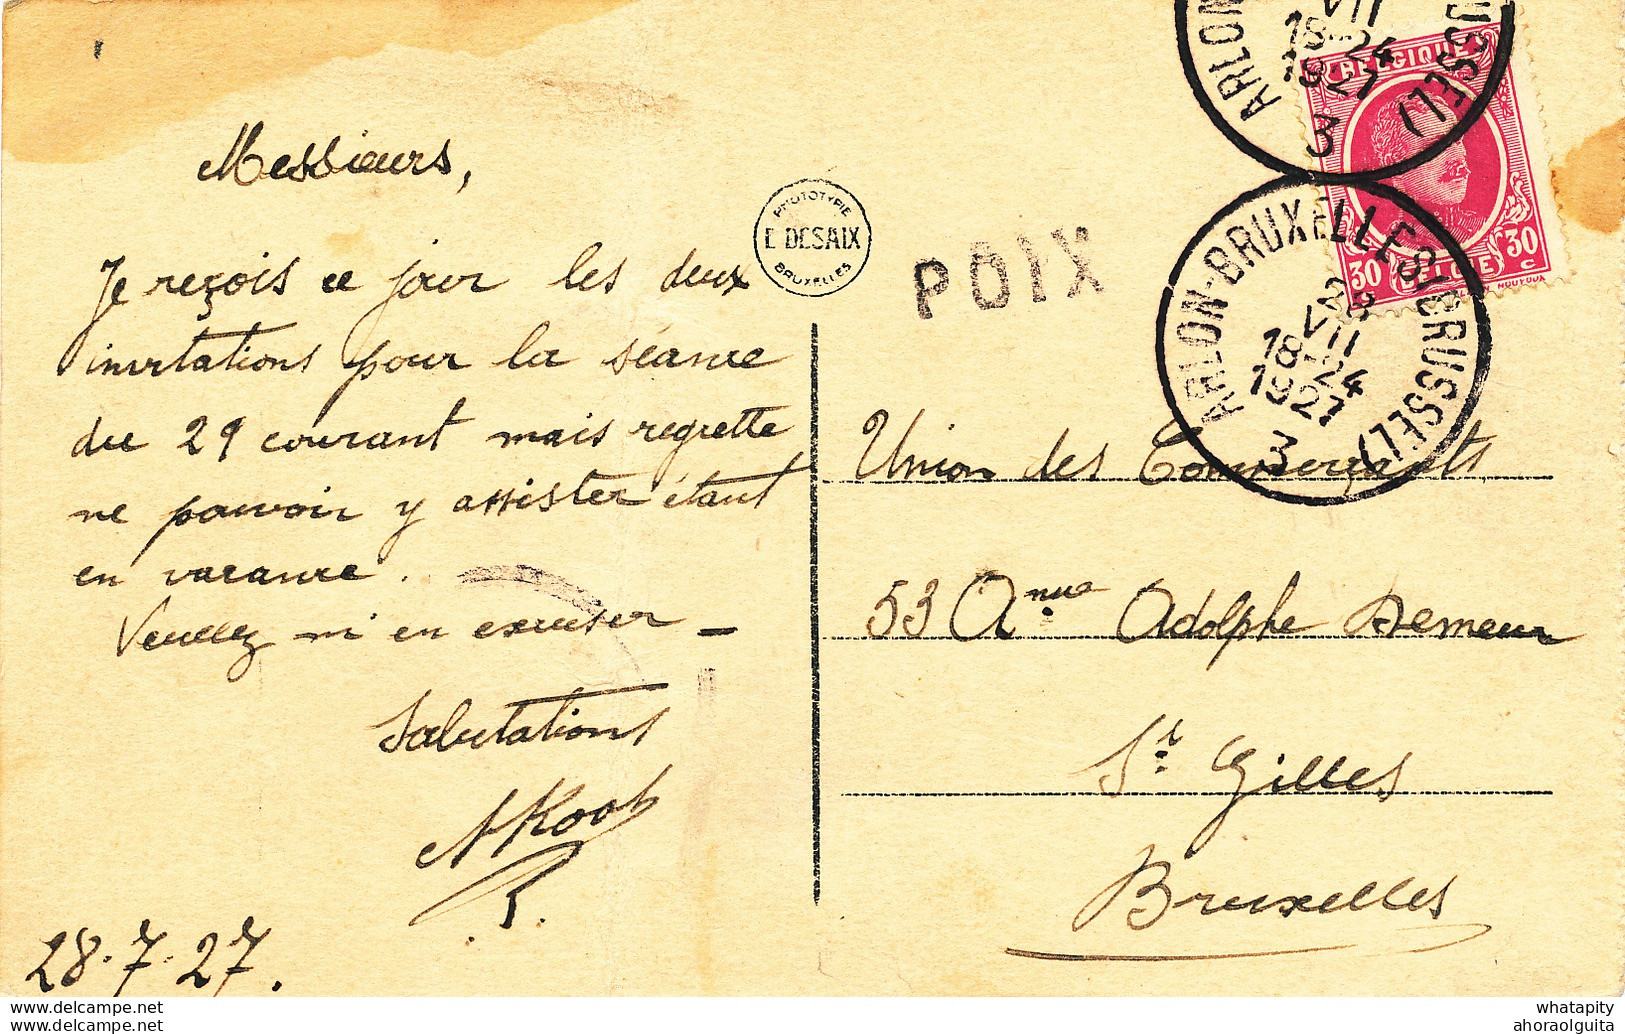 Messieurs,
Je reçois ce jour les deux
invitations pour la séance
du 29 courant mais regrette
ne pouvoir y assister étant
en vacance.
Veuillez m'en excuser —
Salutations
28.7.27.
PHOTOTYPIE
E DESAIX
BRUXELLES
POIX
ARLON
VII
18-24
1927
3
SSEL 1)
BELGIQUE
30 30
BELGIE
ARLON-BRUXELLES(BRUSSEL 1)
28
VII
18-24
1927
3
Union des Commerçants
53 Anue Adolphe Demeur
St Gilles
Bruxelles
whatapity
ahoraolguita